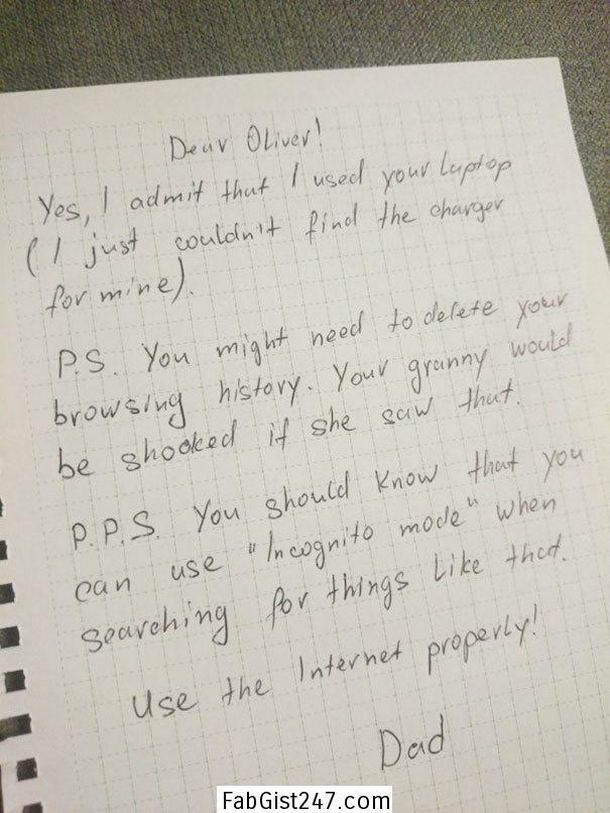 Dear Oliver!
Yes, I admit that I used your laptop
(I just couldn't find the charger
for mine).
P.S. You might need to delete your
browsing history. Your granny would
be shocked if she saw that.
P.P.S. You should know that you
can use "Incognito mode" when
searching for things like that.
Use the Internet properly!
Dad
FabGist247.com